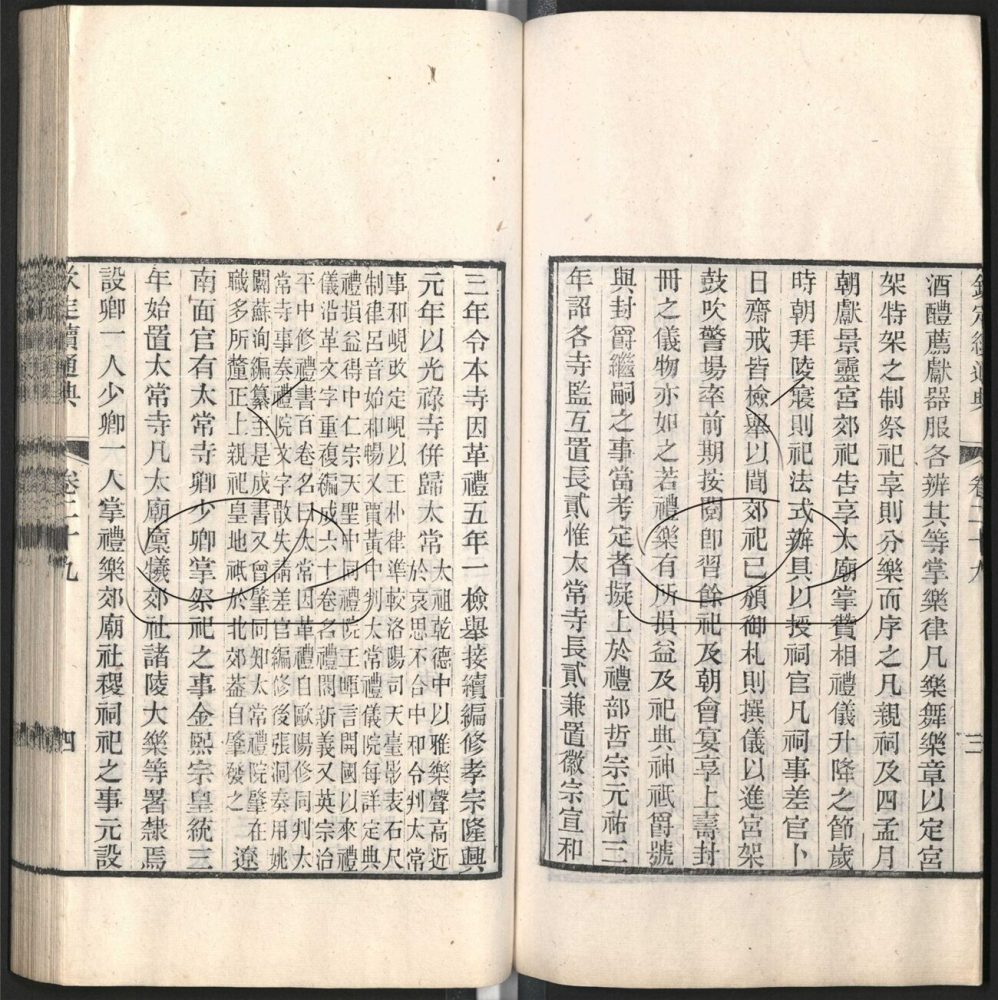 欽定續通典
卷二十九
三
酒醴薦獻器服各辨其等掌樂律凡樂舞樂章以定宮
架特架之制祭祀享則分樂而序之凡親祠及四孟月
朝獻景靈宮郊祀告享太廟掌贊相禮儀升降之節歲
時朝拜陵寢則祀法式辨具以授祠官凡祠事差官卜
日齋戒皆檢舉以聞郊祀已頒御札則撰儀以進宮架
鼓吹警場率前期按閱即習餘祀及朝會宴享上壽封
冊之儀物亦如之若禮樂有所損益及祀典神祇爵號
與封爵繼嗣之事當考定者擬上於禮部哲宗元祐三
年詔各寺監互置長貳惟太常寺長貳兼置徽宗宣和
三年令本寺因革禮五年一檢舉接續編修孝宗隆興
元年以光祿寺併歸太常太祖乾德中以雅樂聲高近
於哀思不合中和令判太常
事和峴改定峴以王朴律準較洛陽司天臺影表石尺
制律呂音始和暢又賈黃中判太常禮儀院每詳定典
禮損益得中仁宗天聖中同禮院王皡言開國以來禮
儀沿革文字重複編成六十卷名禮閣新義又英宗治
平中修禮書百卷名曰太常因革禮自歐陽修同判太
常寺事奏禮院文字散失請差官編修後張洞奏用姚
闢蘇洵編纂至是成書又曾肇同知太常禮院肇在
職多所釐正上親祀皇地祇於北郊葢自肇發之遼
南面官有太常寺卿少卿掌祭祀之事金熙宗皇統三
年始置太常寺凡太廟廩犧郊社諸陵大樂等署隸焉
設卿一人少卿一人掌禮樂郊廟社稷祠祀之事元設
欽定續通典
卷二十九
四